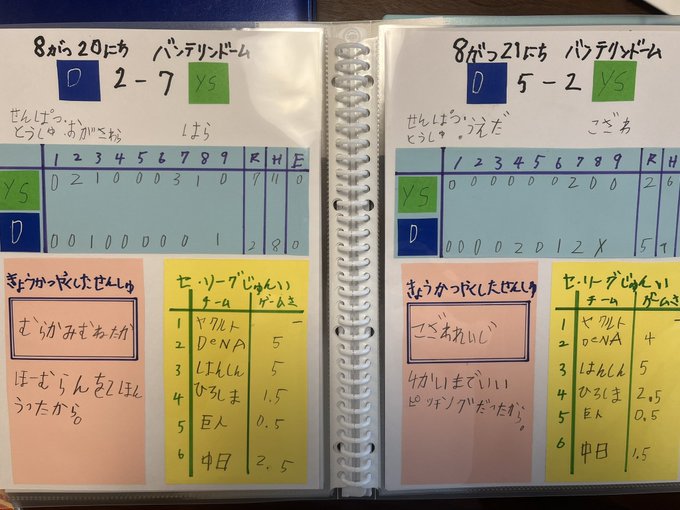 8がつ20にち バンテリンドーム
D 2-7 YS
せんぱつ
とうしゅ おがさわら はら
1 2 3 4 5 6 7 8 9 R H E
YS 0 2 1 0 0 0 3 1 0 7 11 0
D 0 0 1 0 0 0 0 0 1 2 8 0
きょうかつやくしたせんしゅ
むらかみむねたか
ほーむらんを2ほん
うったから。
セ・リーグじゅんい
チーム ゲームさ
1 ヤクルト -
2 DeNA 5
3 はんしん 5
4 ひろしま 1.5
5 巨人 0.5
6 中日 2.5
8がつ21にち バンテリンドーム
D 5-2 YS
せんぱつ
とうしゅ うえだ こざわ
1 2 3 4 5 6 7 8 9 R H
YS 0 0 0 0 0 0 2 0 0 2 6
D 0 0 0 0 2 0 1 2 X 5
きょうかつやくしたせんしゅ
こざわれいじ
4かいまでいい
ピッチングだったから。
セ・リーグじゅんい
チーム ゲームさ
1 ヤクルト -
2 DeNA 4
3 はんしん 5
4 ひろしま 2.5
5 巨人 0.5
6 中日 1.5